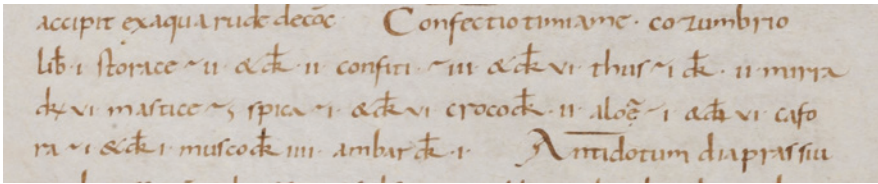 accipit exaqua rude decoc Confectio timiame · cozumbrio
lib · i · storace ~ ii · & dk · ii · confiti · ~ iii · & dk vi · thus ~ i dk · ii · mirra
dk vi mastice ~ spica ~ i · & dk vi croco dk · ii · aloe ~ i · & dk vi cafo
ra ~ i & dk i · musco dk iiii · ambar dk · i · Antidotum diaprassiu